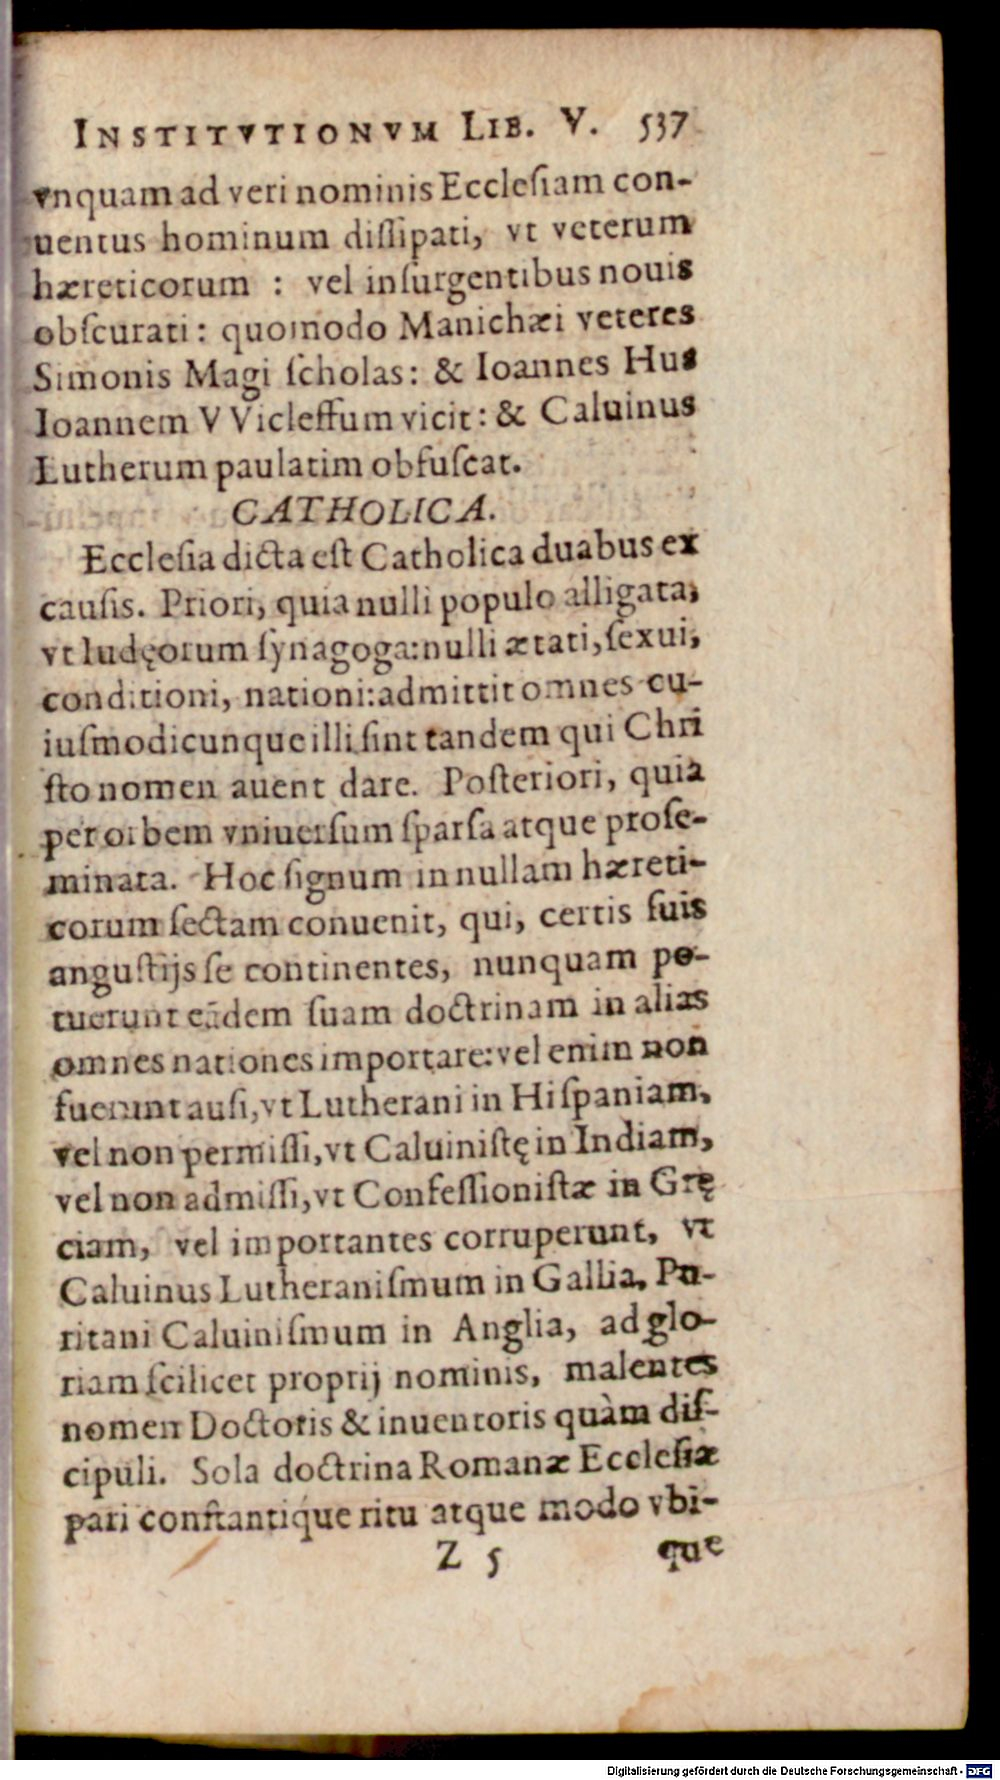 INSTITVTIONVM LIB. V. 537
vnquam ad veri nominis Ecclesiam con-
uentus hominum dissipati, vt veterum
hæreticorum : vel insurgentibus nouis
obscurati: quomodo Manichæi veteres
Simonis Magi scholas: & Ioannes Hus
Ioannem VVicleffum vicit: & Caluinus
Lutherum paulatim obfuscat.
CATHOLICA.
Ecclesia dicta est Catholica duabus ex
causis. Priori, quia nulli populo alligata,
vt Iudęorum synagoga: nulli ætati, sexui,
conditioni, nationi: admittit omnes cu-
iusmodicunque illi sint tandem qui Chri
sto nomen auent dare. Posteriori, quia
per orbem vniuersum sparsa atque prose-
minata. Hoc signum in nullam hæreti-
corum sectam conuenit, qui, certis suis
angustijs se continentes, nunquam po-
tuerunt eādem suam doctrinam in alias
omnes nationes importare: vel enim non
fuerunt ausi, vt Lutherani in Hispaniam,
vel non permissi, vt Caluinistę in Indiam,
vel non admissi, vt Confessionistæ in Grę
ciam, vel importantes corruperunt, vt
Caluinus Lutheranismum in Gallia, Pu-
ritani Caluinismum in Anglia, ad glo-
riam scilicet proprij nominis, malentes
nomen Doctoris & inuentoris quàm dis-
cipuli. Sola doctrina Romanæ Ecclesiæ
pari constantíque ritu atque modo vbi-
Z 5 que
Digitalisierung gefördert durch die Deutsche Forschungsgemeinschaft - DFG